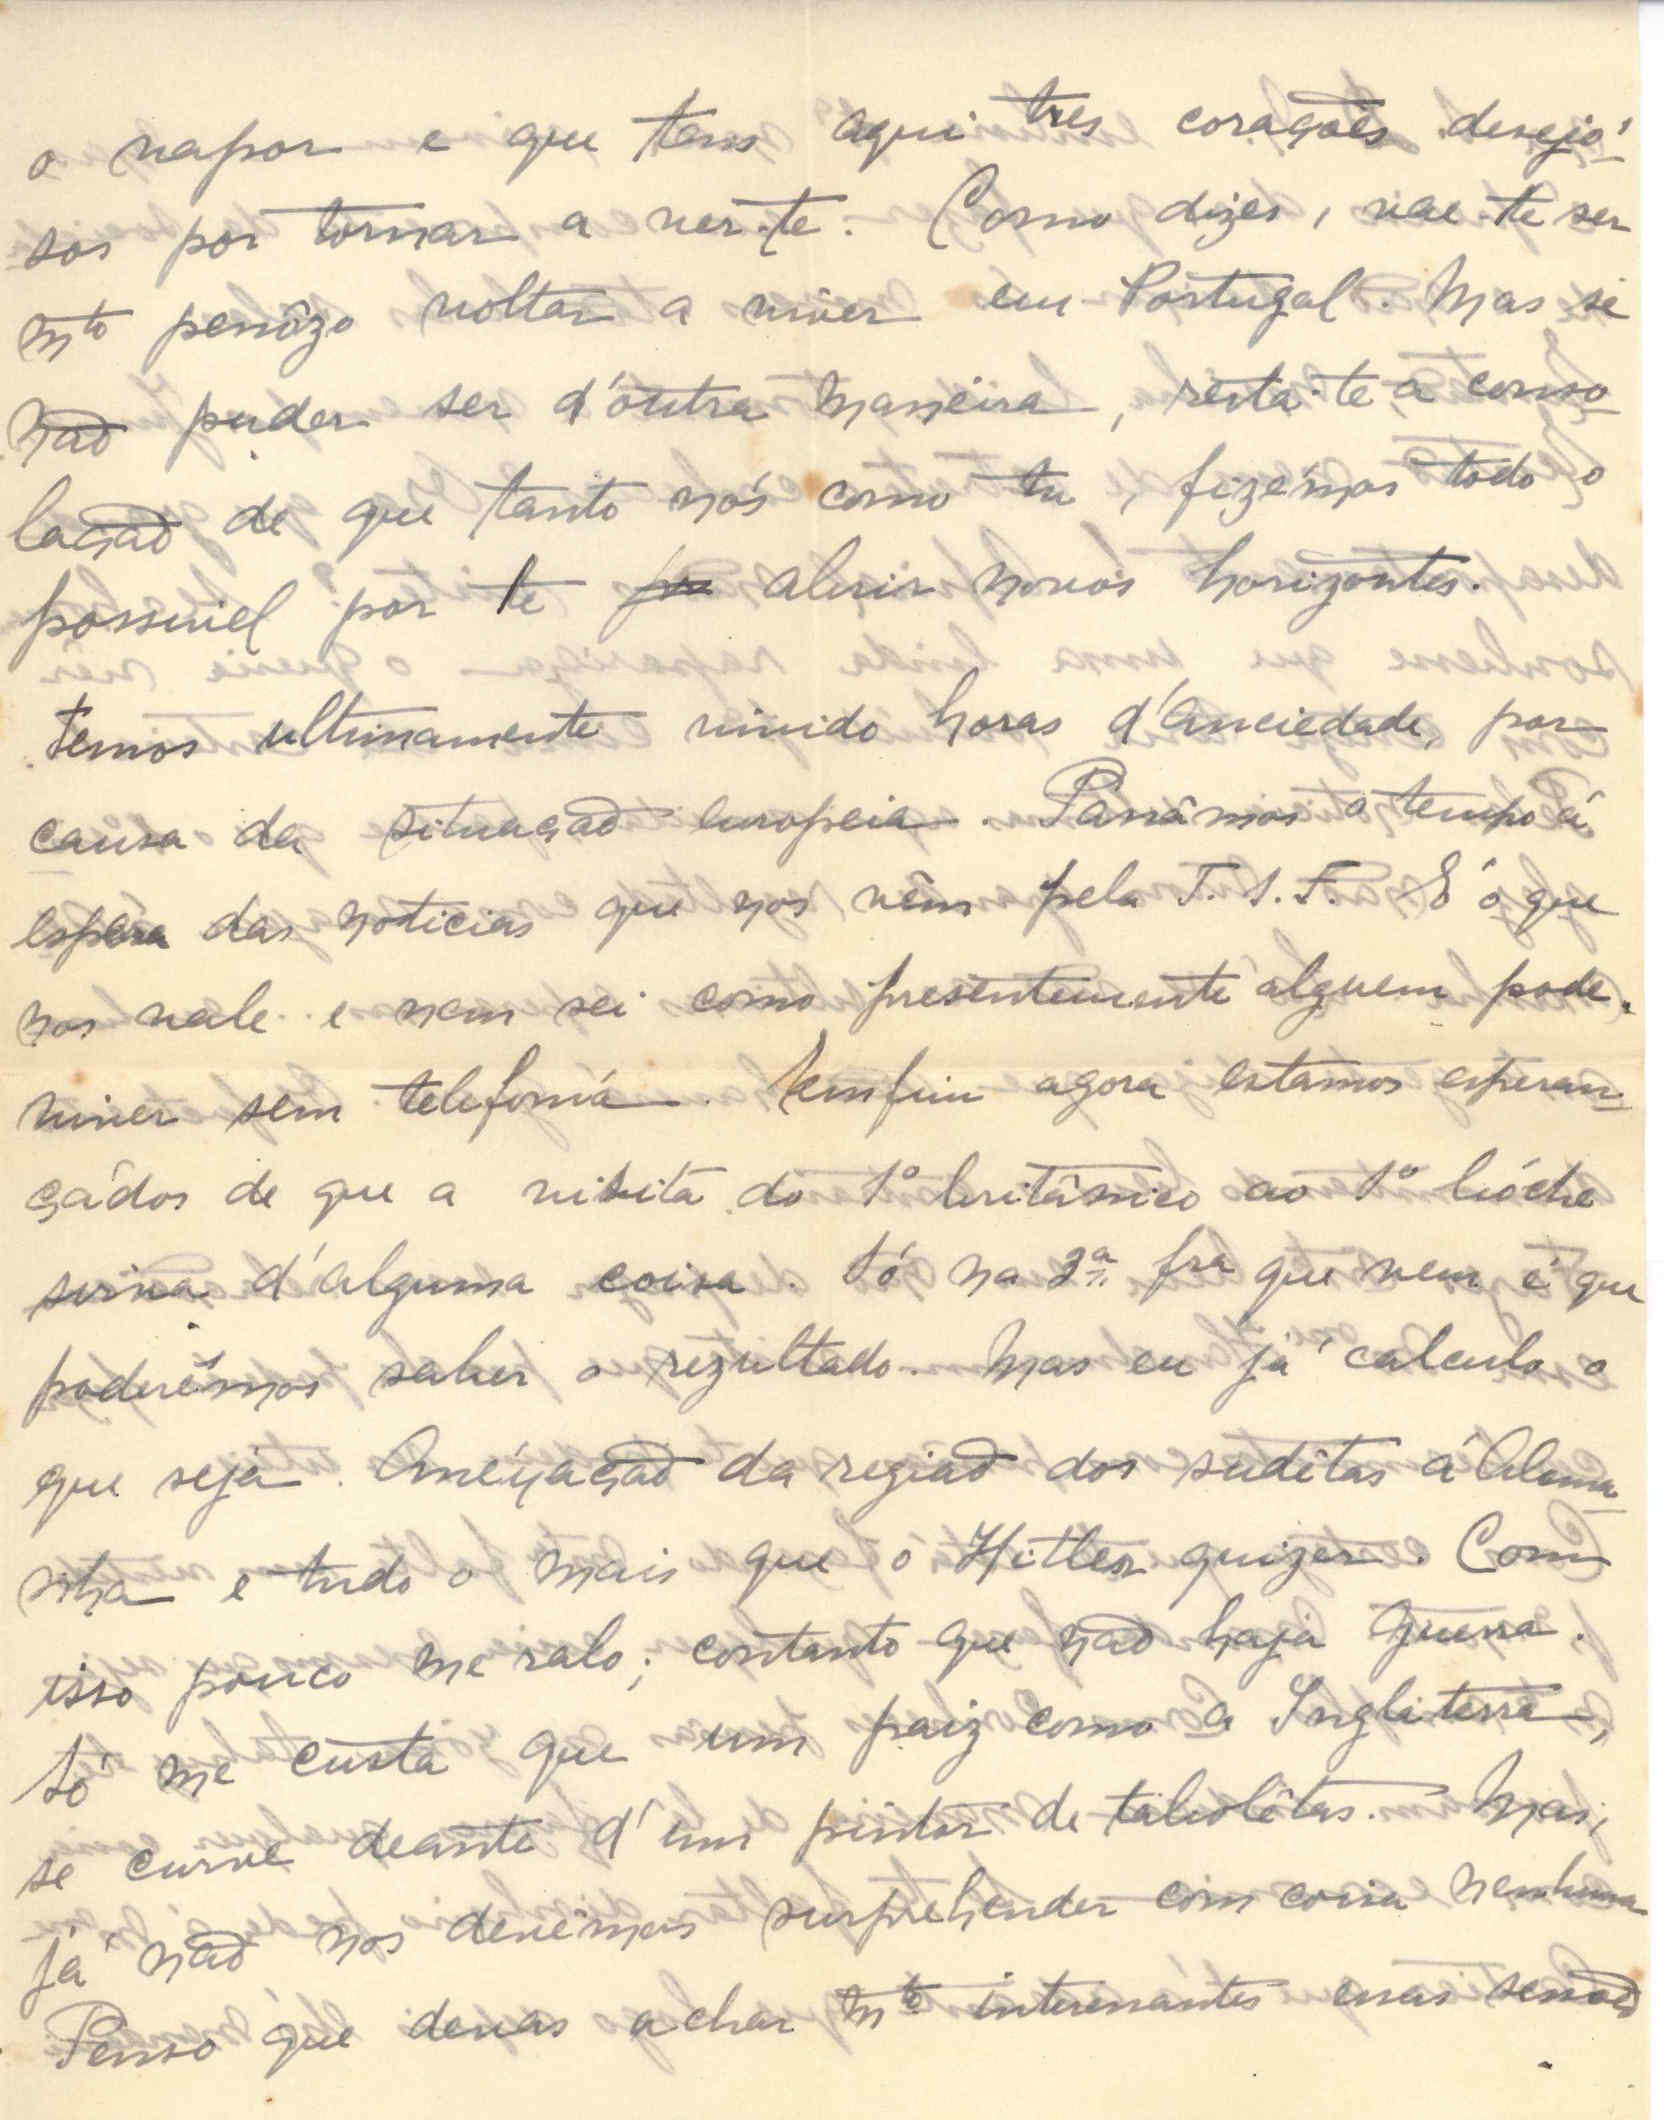 o vapor e que tens aqui tres coraçoês desejó-
sos por tornar a ver-te. Como dizes, vae-te ser
mto penôzo voltar a viver em Portugal. Mas se
naõ puder ser d'óutra maneira, resta-te a conso-
laçaõ de que tanto nós como tu, fizémos todo o
possivel por te abrir novos horizontes.
Temos ultimamente vivido horas d'anciedade, por
causa da situaçaõ europeia. Passâmos o tempo á
espera das noticias que nos vêm pela T.S.F. E' o que
nos vale e nem sei como presentemente alguem pode
viver sem telefonia. Emfim agora estamos esperan-
çádos de que a visita do 1º britânico ao 1º bóche
sirva d'alguma coisa. Só na 2ª fra que vem é que
poderêmos saber o rezultado. Mas eu já calculo o
que seja. Anéxaçaõ da regiaõ dos sudêtas á Alema-
nha e tudo o mais que o Hitler quizer. Com
isso pouco me ralo; contanto que naõ haja guerra.
Só me custa que um paiz como a Inglaterra,
se curve deante d'um pintor de tabolêtas. Mas,
já naõ nos devêmos surprehender com coisa nenhuma
Penso que devas achar mto interessantes essas sessoês